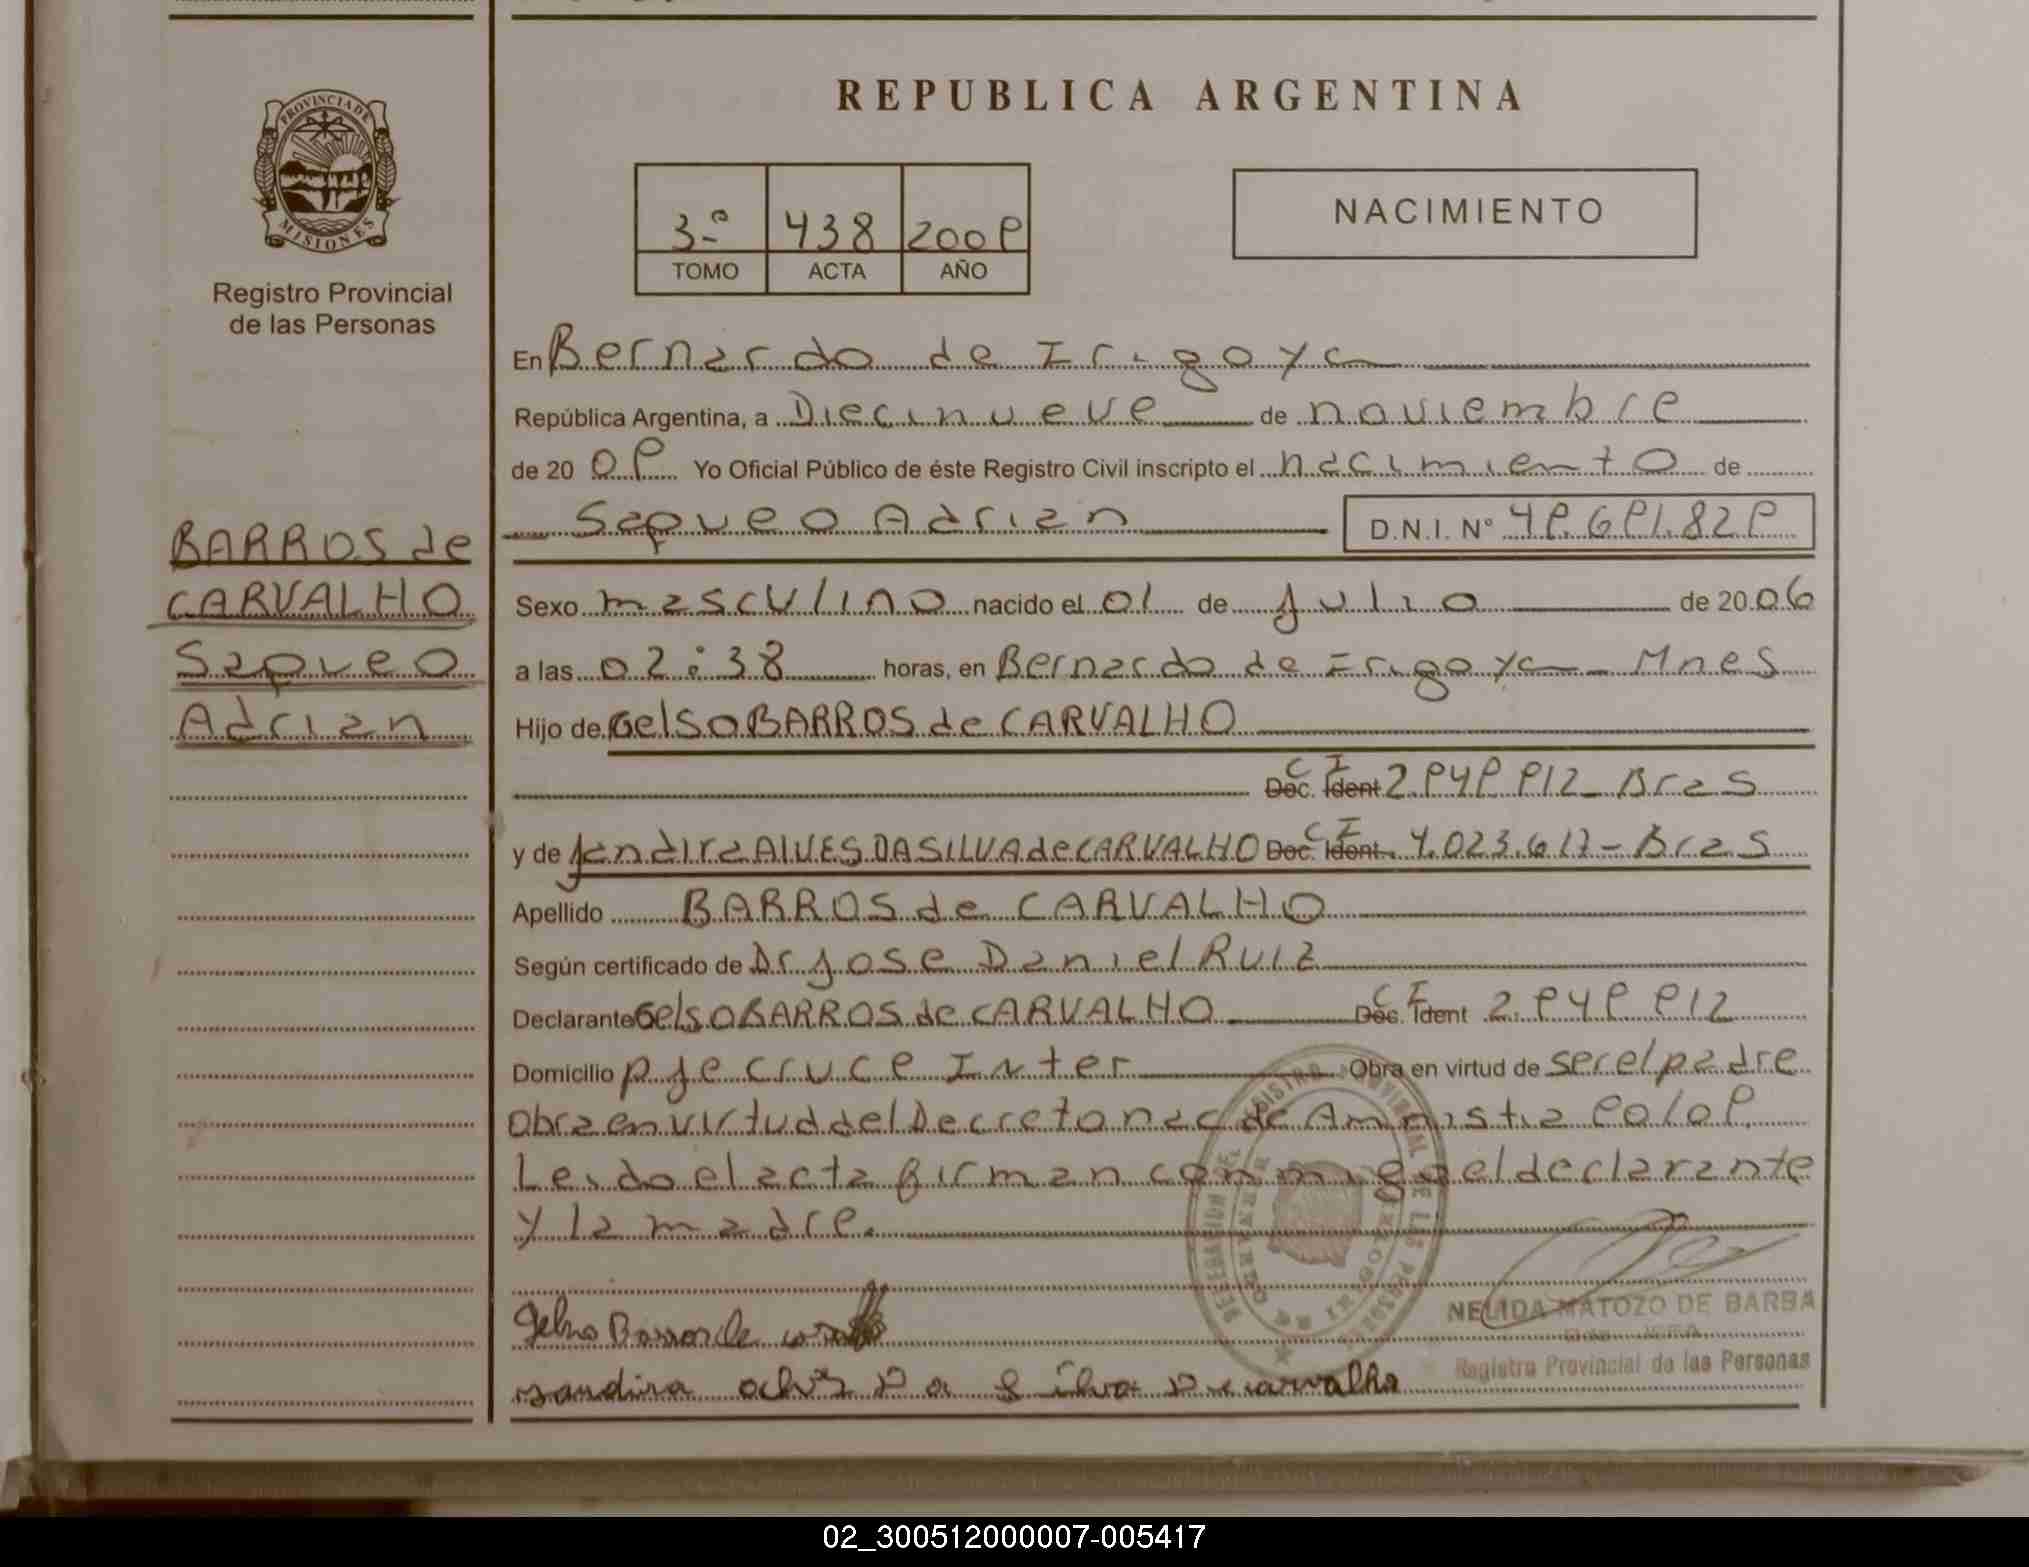 PROVINCIA DE
MISIONES
Registro Provincial
de las Personas
BARROS de
CARVALHO
Sapueo
Adrian
REPUBLICA ARGENTINA
3º 438 2009
TOMO ACTA AÑO
NACIMIENTO
En Bernardo de Irigoyen
República Argentina, a Diecinueve de noviembre
de 20 09 Yo Oficial Público de éste Registro Civil inscripto el nacimiento de
Sapueo Adrian D.N.I. Nº 49.691.829
Sexo masculino nacido el 01 de julio de 2006
a las 02:38 horas, en Bernardo de Irigoyen - Mnes
Hijo de Gelso BARROS de CARVALHO
Doc. Ident C I 2.949.912 - Bras
y de Jandira ALVES DA SILVA de CARVALHO Doc. Ident. C I 4.023.617 - Bras
Apellido BARROS de CARVALHO
Según certificado de Dr Jose Daniel RUIZ
Declarante Gelso BARROS de CARVALHO Doc. Ident C I 2.949.912
Domicilio pje cruce Inter Obra en virtud de ser el padre
Obra en virtud del Decreto nac de Amnistia 90/09.
Leido el acta firman conmigo el declarante
y la madre.
Gelso Barros de
Jandira alves Da Silva De carvalho
NELIDA MATOZO DE BARBA
Registro Provincial de las Personas
02_300512000007-005417